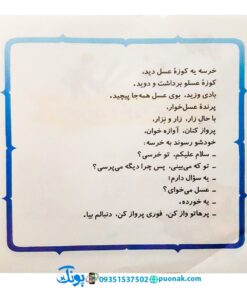 خرسه یه کوزهٔ عسل دید،
کوزهٔ عسلو برداشت و دوید.
بادی وزید، بوی عسل همه‌جا پیچید.
پرندهٔ عسل‌خوار،
با حالِ زار، زار و نِزار،
پرواز کنان، آوازه خوان،
خودشو رسوند به خرسه:
ـ سلام علیکم، تو خرسی؟
ـ تو که می‌بینی، پس چرا دیگه می‌پرسی؟
ـ یه سؤال دارم؛
ـ عسل می‌خوای؟
ـ یه خورده.
ـ پرهاتو واز کن، فوری پرواز کن، دنبالم بیا.
پونک 09351537502 puonak.com